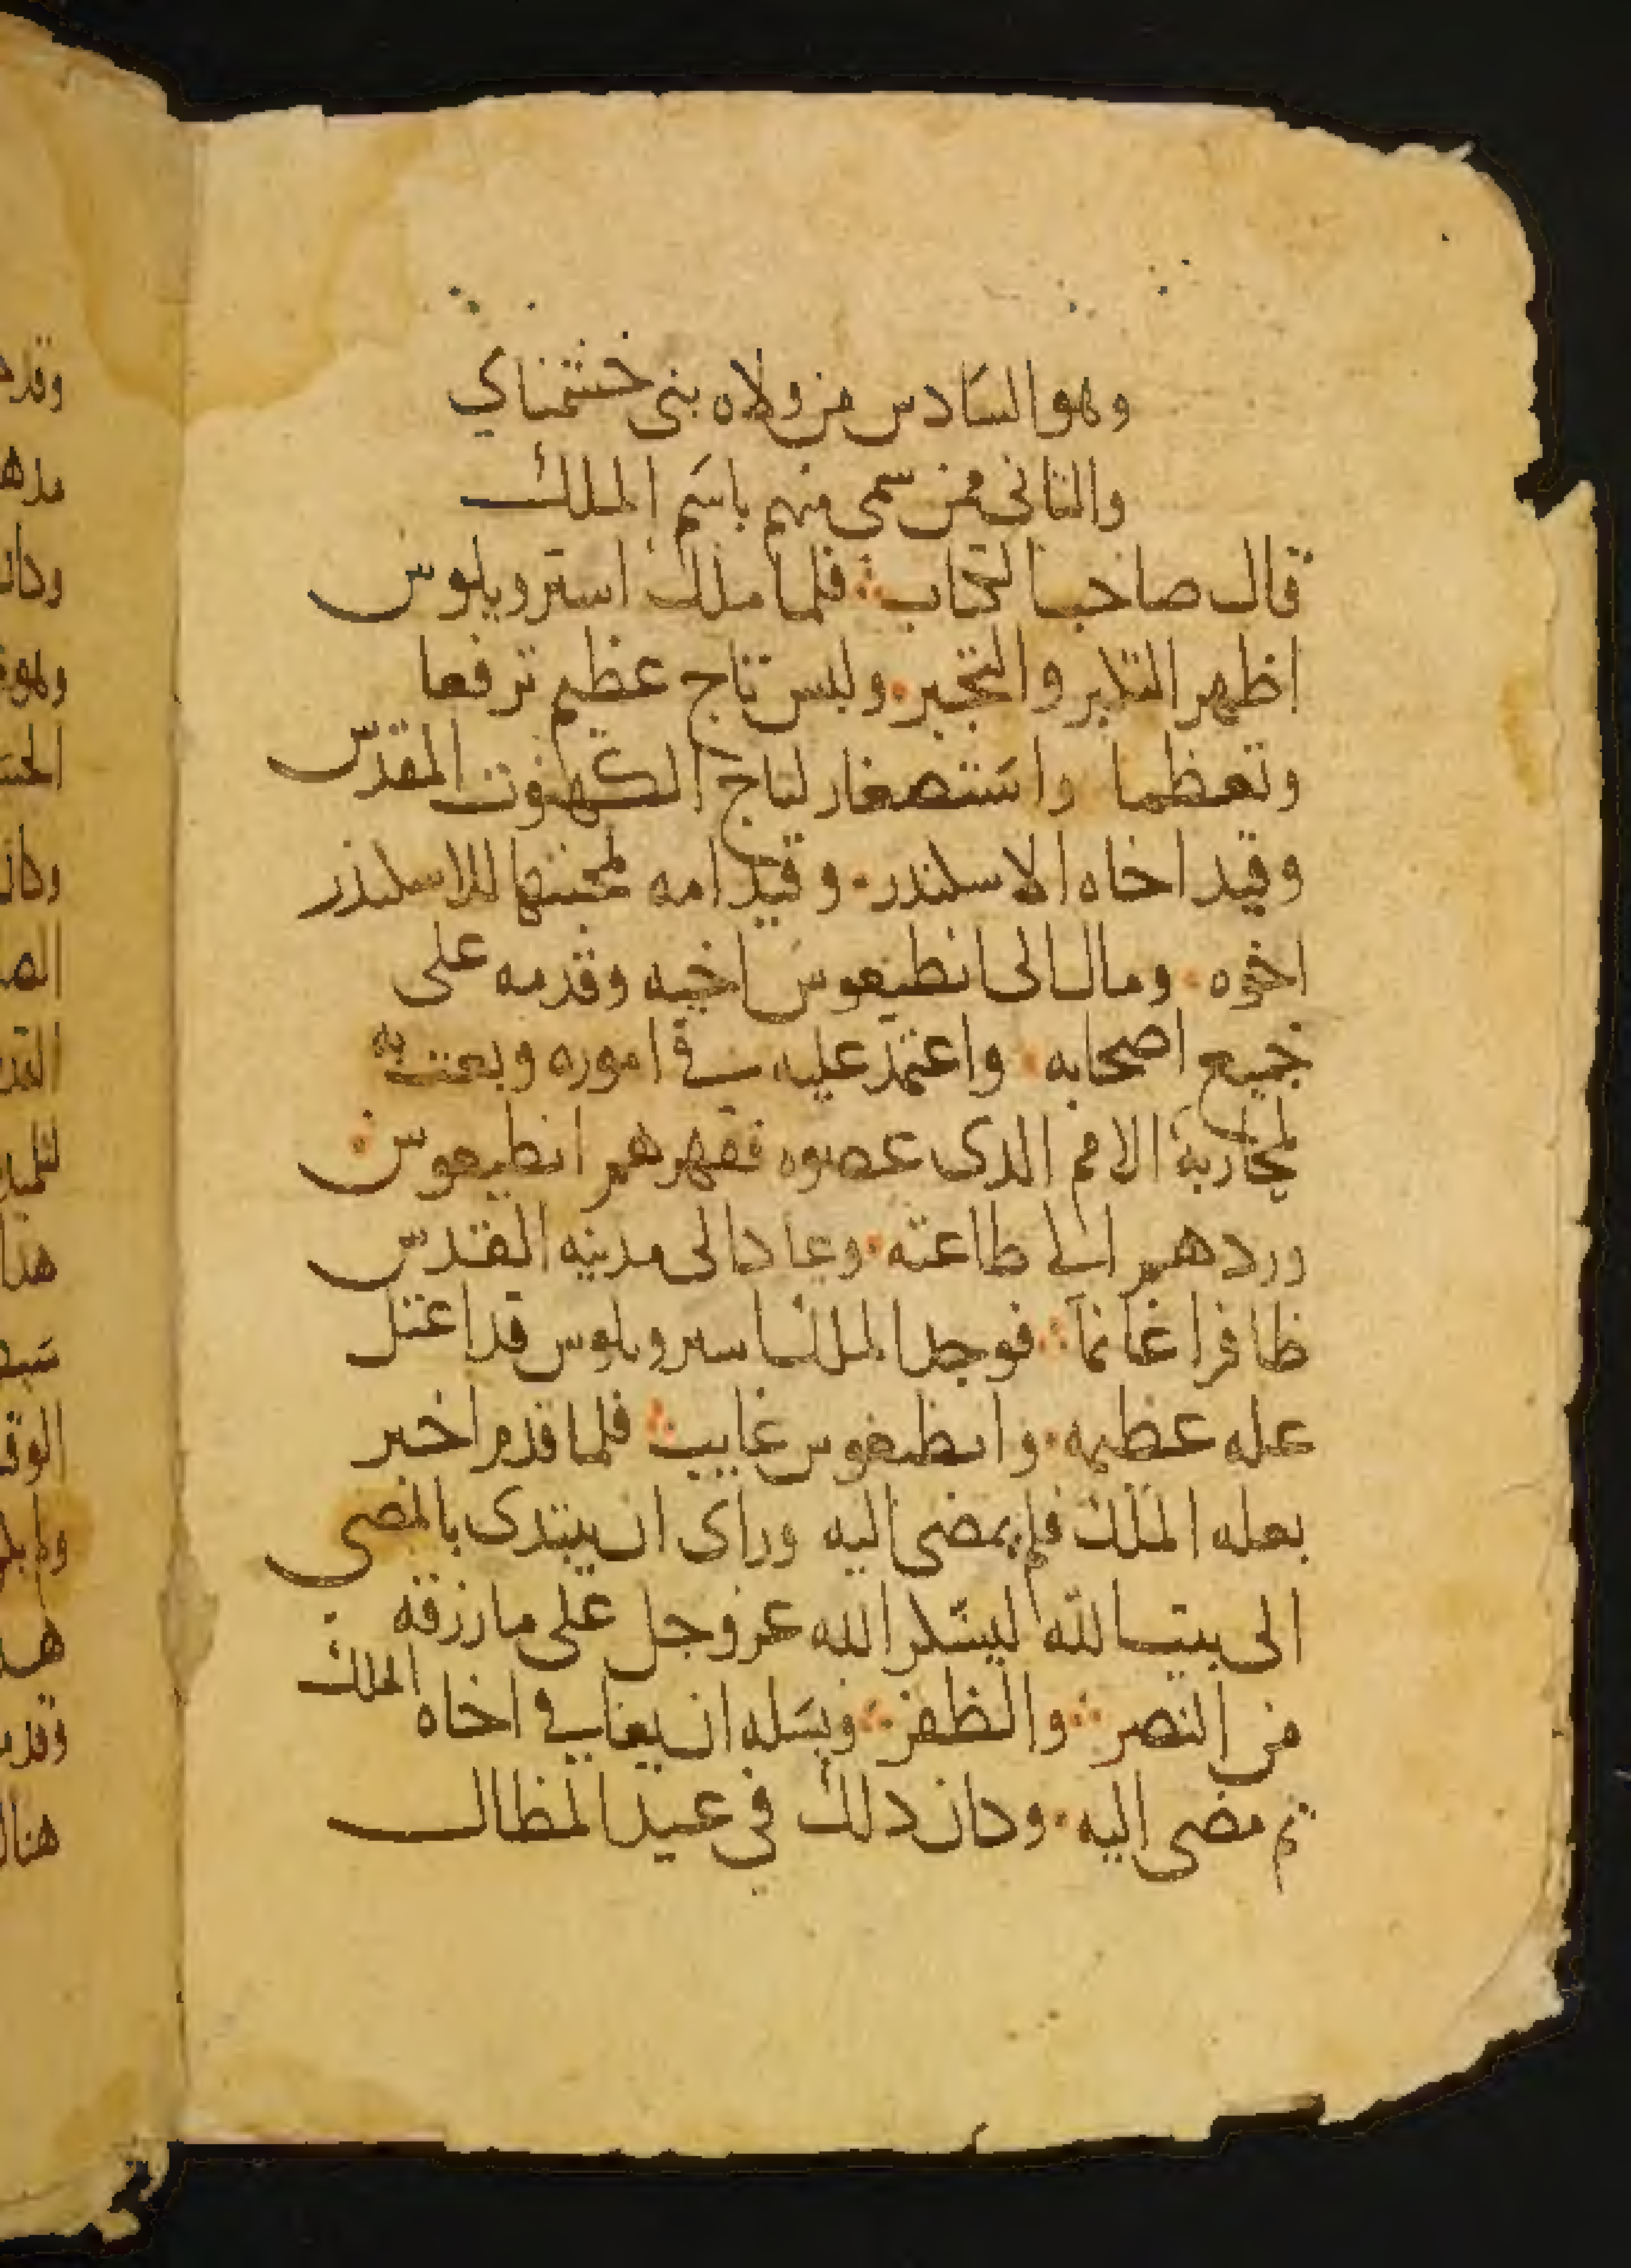 وهو السادس من ولاه بنى خشمناي
والثانى ممن سمى منهم باسم الملك
قال صاحب الكتاب فلما ملك استروبلوس
اظهر التكبر والتجبر وليس تاج عظيم ترفعا
وتعظما واستصغار لتاج الكهنوت المقدس
وقيد اخاه الاسكندر وقيد امه لمحبتها للاسكندر
اخوه ومال الى انطيغوس اخيه وقدمه على
جميع اصحابه واعتمد عليه في اموره وبعث به
لمحاربة الامم الدى عصوه فقهرهم انطيغوس
وردهم الى طاعته وعاد الى مدينه القدس
ظافرا غانما فوجد الملك استروبلوس قد اعتل
عله عظيمه وانطيغوس غايب فلما قدم اخبر
بعله الملك فلم يمضى اليه وراى ان يبتدى بالمضى
الى بيت الله ليشكر الله عز وجل على ما رزقه
من النصر والظفر ويسله ان يعافى اخاه الملك
ثم مضى اليه وكان دلك في عيد المظال